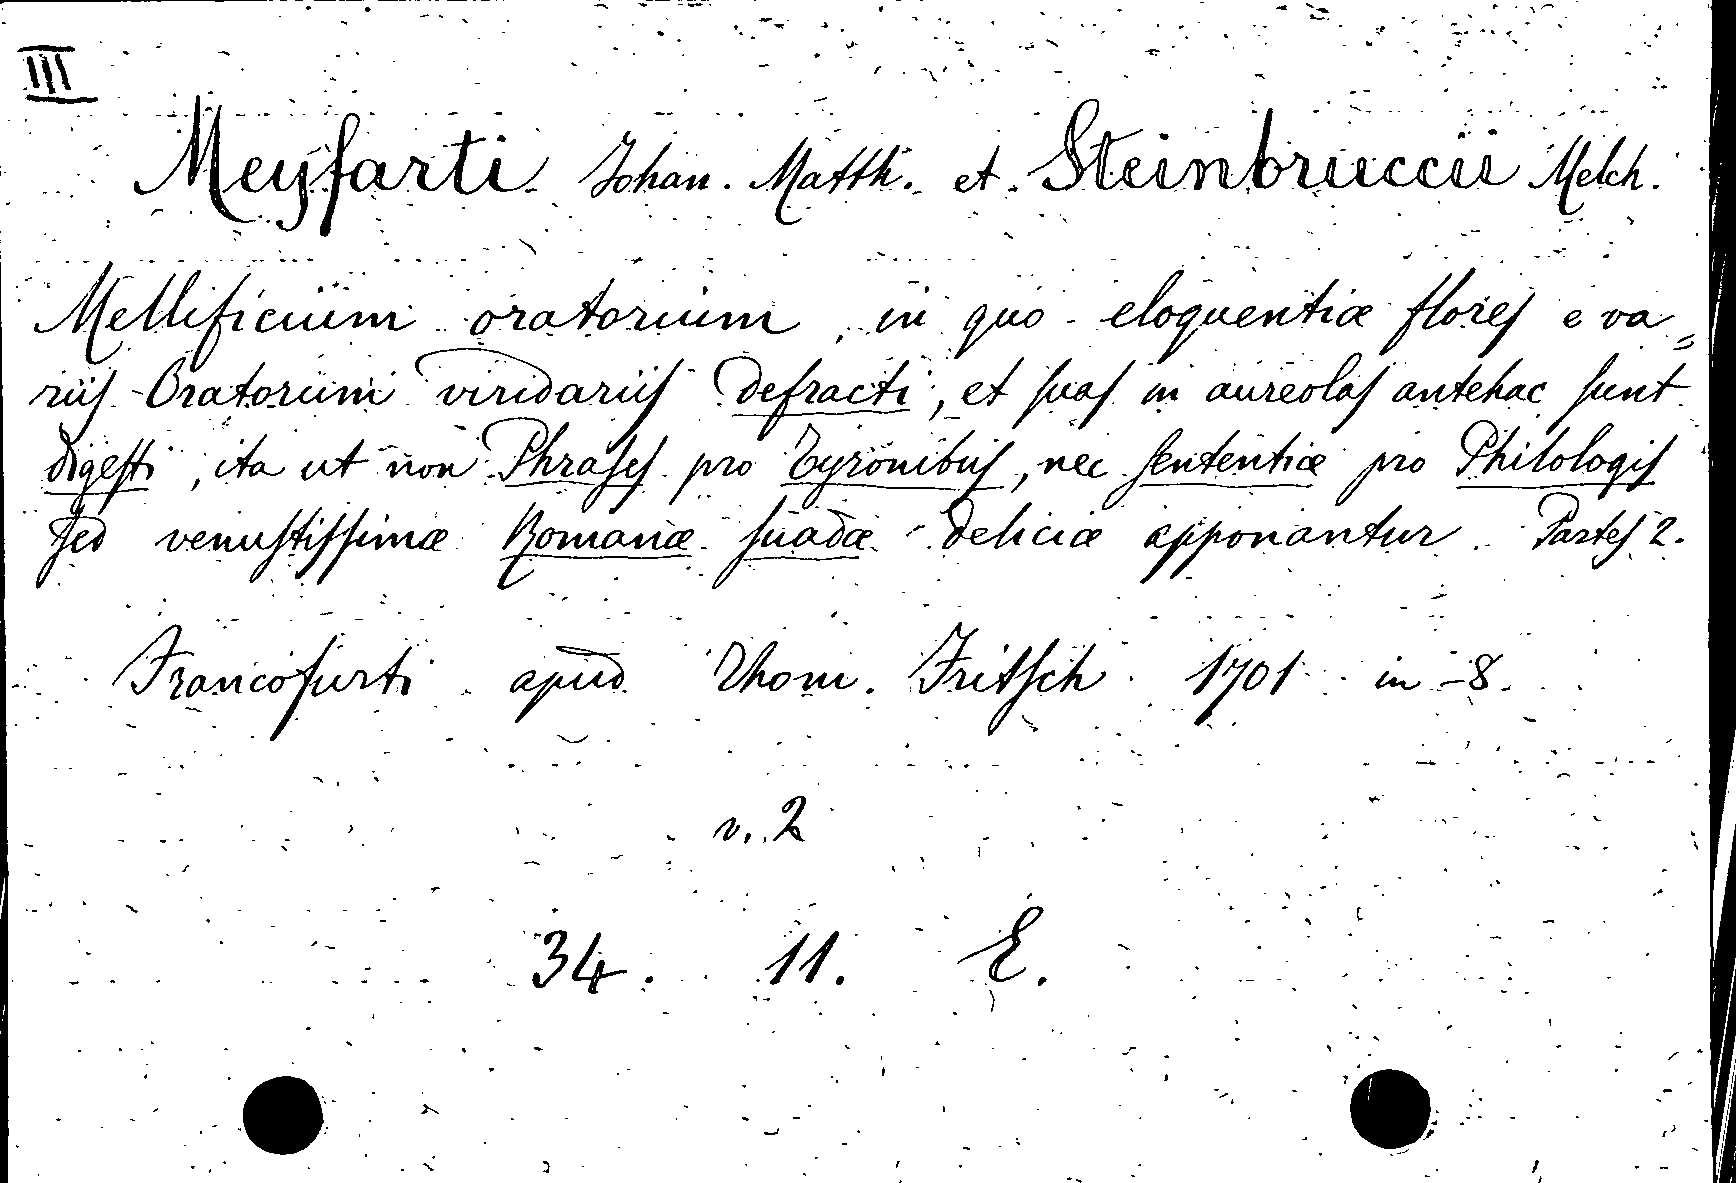 III
Meyfarti Johan. Matth. et Steinbruccii Melch.
Mellificium oratorium, in quo eloquentiæ flores e va=
riis Oratorum viridariis defracti, et suas in aureolas antehac sunt
digesti, ita ut non Phrases pro Tyronibus, nec sententiæ pro Philologis
sed venustissimæ Romanæ suadæ deliciæ apponantur. Partes 2.
Francofurti apud Thom. Fritsch 1701 in-8.
v. 2
34. 11. E.